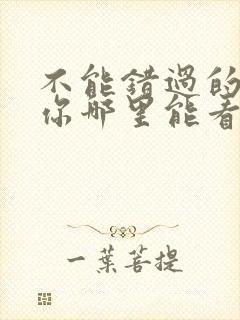 不能错過的
你哪里能看
一葉菩提